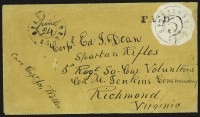 June
24
PAID
5
Corpl Ed. J. Dean
Spartan Rifles
5th Regt So. Car. Volunteers
Col. M. Jenkins
Richmond
Virginia
Care Capt